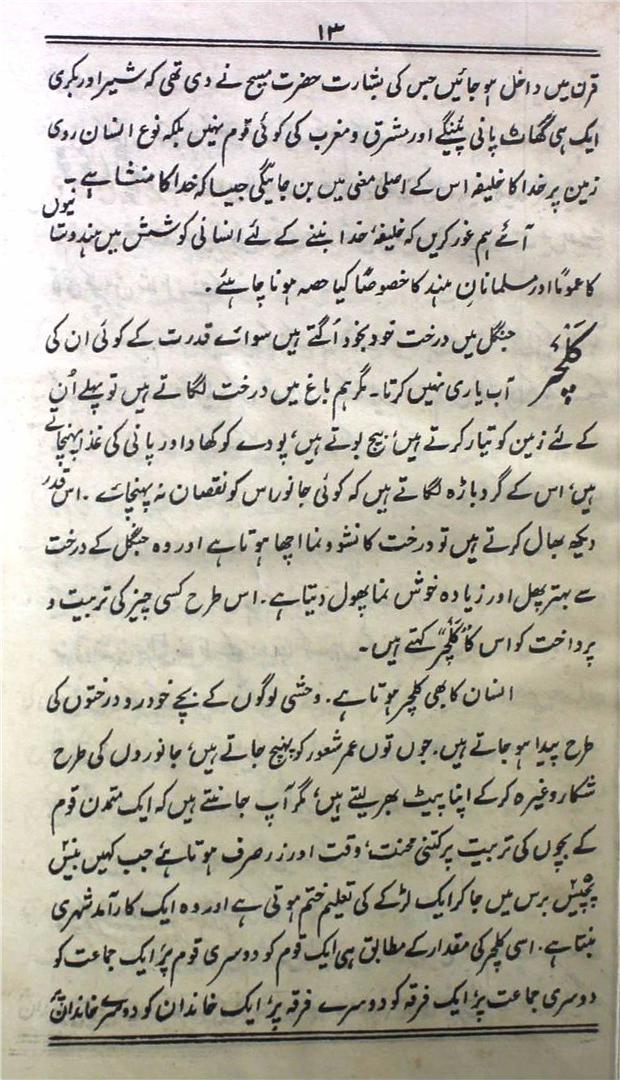 ۱۳
قرن میں داخل ہو جائیں جس کی بشارت حضرت مسیح نے دی تھی کہ شیر اور بکری
ایک ہی گھاٹ پانی پئینگے اور مشرق و مغرب کی کوئی قوم نہیں بلکہ نوع انسان روی
زمین پر خدا کا خلیفہ اس کے اصلی معنی میں بن جائیگی جیسا کہ خدا کا منشا ہے ۔
آئے ہم غور کریں کہ خلیفۂ خدا بننے کے لئے انسانی کوشش میں ہندوستانیوں
کا عموماً اور مسلمانانِ ہند کا خصوصاً کیا حصہ ہونا چاہئے ۔
کلچر جنگل میں درخت خود بخود اُگتے ہیں سوائے قدرت کے کوئی ان کی
آب یاری نہیں کرتا ۔ مگر ہم باغ میں درخت لگاتے ہیں تو پہلے اُن
کے لئے زمین کو تیار کرتے ہیں، بیج بوتے ہیں، پودے کو کھاد اور پانی کی غذا پہنچاتے
ہیں، اس کے گرد باڑہ لگاتے ہیں کہ کوئی جانور اس کو نقصان نہ پہنچائے ۔ اس قدر
دیکھ بھال کرتے ہیں تو درخت کا نشو و نما اچھا ہوتا ہے اور وہ جنگل کے درخت
سے بہتر پھل اور زیادہ خوش نما پھول دیتا ہے ۔ اس طرح کسی چیز کی تربیت و
پرداخت کو اس کا "کلچر" کہتے ہیں ۔
انسان کا بھی کلچر ہوتا ہے ۔ وحشی لوگوں کے بچے خودرو درختوں کی
طرح پیدا ہو جاتے ہیں ۔ جوں توں عمر شعور کو پہنچ جاتے ہیں، جانوروں کی طرح
شکار وغیرہ کر کے اپنا پیٹ بھر لیتے ہیں، مگر آپ جانتے ہیں کہ ایک متمدن قوم
کے بچوں کی تربیت پر کتنی محنت، وقت اور زر صرف ہوتا ہے، جب کہیں بیس
پچیس برس میں جا کر ایک لڑکے کی تعلیم ختم ہوتی ہے اور وہ ایک کارآمد شہری
بنتا ہے ۔ اسی کلچر کی مقدار کے مطابق ہی ایک قوم کو دوسری قوم پر، ایک جماعت کو
دوسری جماعت پر، ایک فرقہ کو دوسرے فرقہ پر، ایک خاندان کو دوسرے خاندان پر